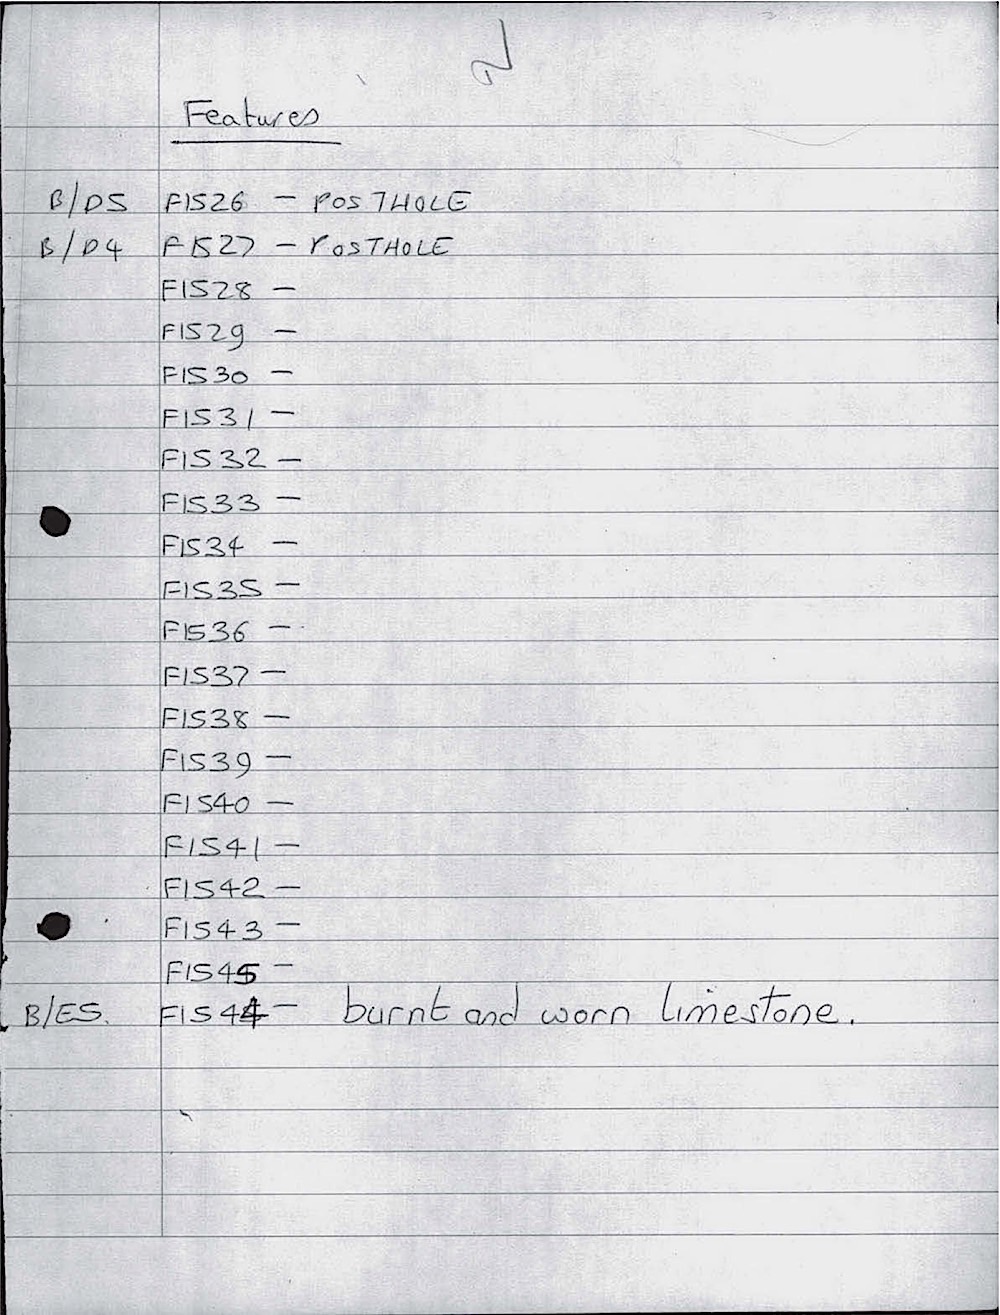 2
Features
B/D5 F1526 - POSTHOLE
B/D4 F1527 - POSTHOLE
F1528 -
F1529 -
F1530 -
F1531 -
F1532 -
F1533 -
F1534 -
F1535 -
F1536 -
F1537 -
F1538 -
F1539 -
F1540 -
F1541 -
F1542 -
F1543 -
F1545 -
B/E5. F1544 - burnt and worn limestone.